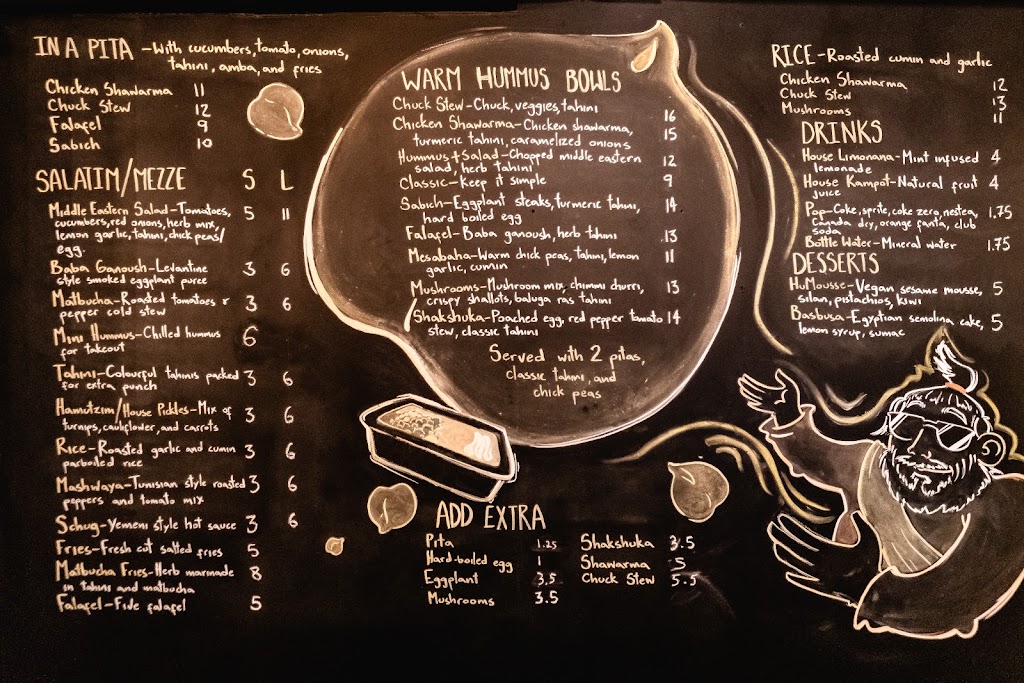 IN A PITA -With cucumbers, tomato, onions,
tahini, amba, and fries
Chicken Shawarma 11
Chuck Stew 12
Falafel 9
Sabich 10
SALATIM/MEZZE S L
Middle Eastern Salad-Tomatoes, 5 11
cucumbers, red onions, herb mix,
lemon garlic, tahini, chick peas/
egg.
Baba Ganoush-Levantine 3 6
style smoked eggplant puree
Matbucha-Roasted tomatoes & 3 6
pepper cold stew
Mini Hummus-Chilled hummus 6
for takeout
Tahini-Colourful tahinis packed 3 6
for extra punch
Hamutzim/House Pickles-Mix of 3 6
turnips, cauliflower, and carrots
Rice-Roasted garlic and cumin 3 6
parboiled rice
Mashwaya-Tunisian style roasted 3 6
peppers and tomato mix
Schug-Yemeni style hot sauce 3 6
Fries-Fresh cut salted fries 5
Matbucha Fries-Herb marinade 8
in tahini and matbucha
Falafel-Five falafel 5
WARM HUMMUS BOWLS
Chuck Stew-Chuck, veggies, tahini 16
Chicken Shawarma-Chicken shawarma, 15
turmeric tahini, caramelized onions
Hummus + Salad-Chopped middle eastern 12
salad, herb tahini
Classic-Keep it simple 9
Sabich-Eggplant steaks, turmeric tahini, 14
hard boiled egg
Falafel-Baba ganoush, herb tahini 13
Mesabaha-Warm chick peas, tahini, lemon 11
garlic, cumin
Mushrooms-Mushroom mix, chimmi churri, 13
crispy shallots, baluga ras tahini
Shakshuka-Poached egg, red pepper tomato 14
stew, classic tahini
Served with 2 pitas,
classic tahini, and
chick peas
ADD EXTRA
Pita 1.25
Hard-boiled egg 1
Eggplant 3.5
Mushrooms 3.5
Shakshuka 3.5
Shawarma 5
Chuck Stew 5.5
RICE-Roasted cumin and garlic
Chicken Shawarma 12
Chuck Stew 13
Mushrooms 11
DRINKS
House Limonana-Mint infused 4
lemonade
House Kampot-Natural fruit 4
juice
Pop-Coke, sprite, coke zero, nestea, 1.75
Canada dry, orange fanta, club
soda
Bottle Water-Mineral water 1.75
DESSERTS
HuMousse-Vegan sesame mousse, 5
silan, pistachios, kiwi
Basbusa-Egyptian semolina cake, 5
lemon syrup, sumac